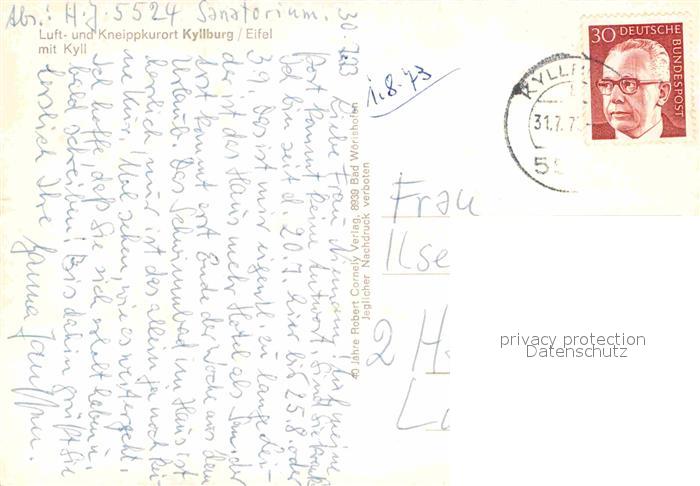 Abs.: H. J. 5524 Sanatorium.
Luft- und Kneippkurort Kyllburg / Eifel
mit Kyll
30.7.73
Liebe Frau auf meine
Post kommt keine Antwort. Sind Sie krank
Ich bin seit d. 20.7. hier bis 25.8. oder
3.9. Das ist mir eigentl. zu lange.
der ist das Haus mehr Hotel als San. der
Arzt kommt erst Ende der Woche aus dem
Urlaub. Das Schwimmbad im Haus ist
herrlich, nur ist das allein ja noch kei-
ne Kur. Mal sehen, wie es weitergeht.
Ich hoffe, daß Sie sich erholt haben u.
bald schreiben! Bis dahin grüßt Sie
herzlich Ihre Hanna
1.8.73
40 Jahre Robert Cornely Verlag, 8939 Bad Wörishofen
Jeglicher Nachdruck verboten
30 DEUTSCHE
BUNDESPOST
31.7.73
Frau
Ilse
2 H
privacy protection
Datenschutz